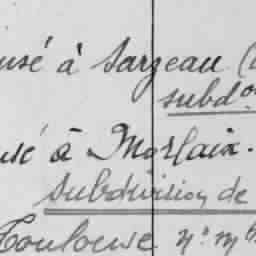 usé à Sarzeau (
subdon
usé à Morlaix.
Subdivision de
Toulouse n° mle